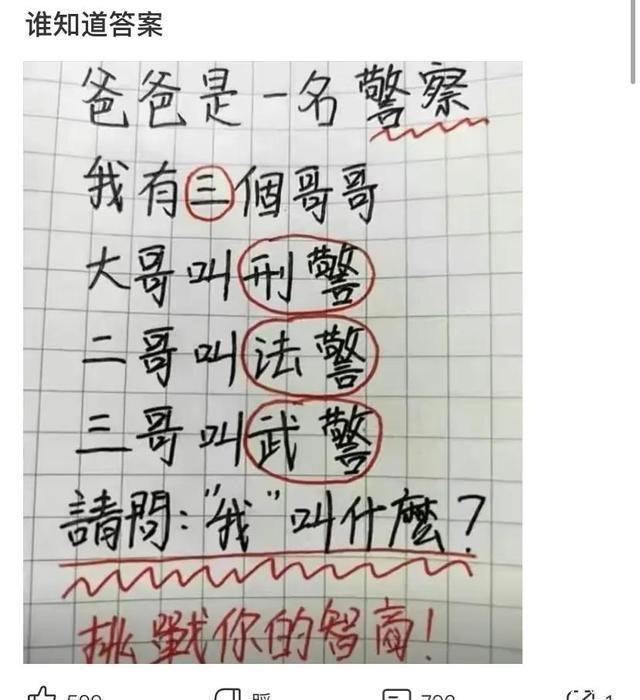 谁知道答案
爸爸是一名警察
我有三個哥哥
大哥叫刑警
二哥叫法警
三哥叫武警
請問:“我”叫什麼?
挑戰你的智商!